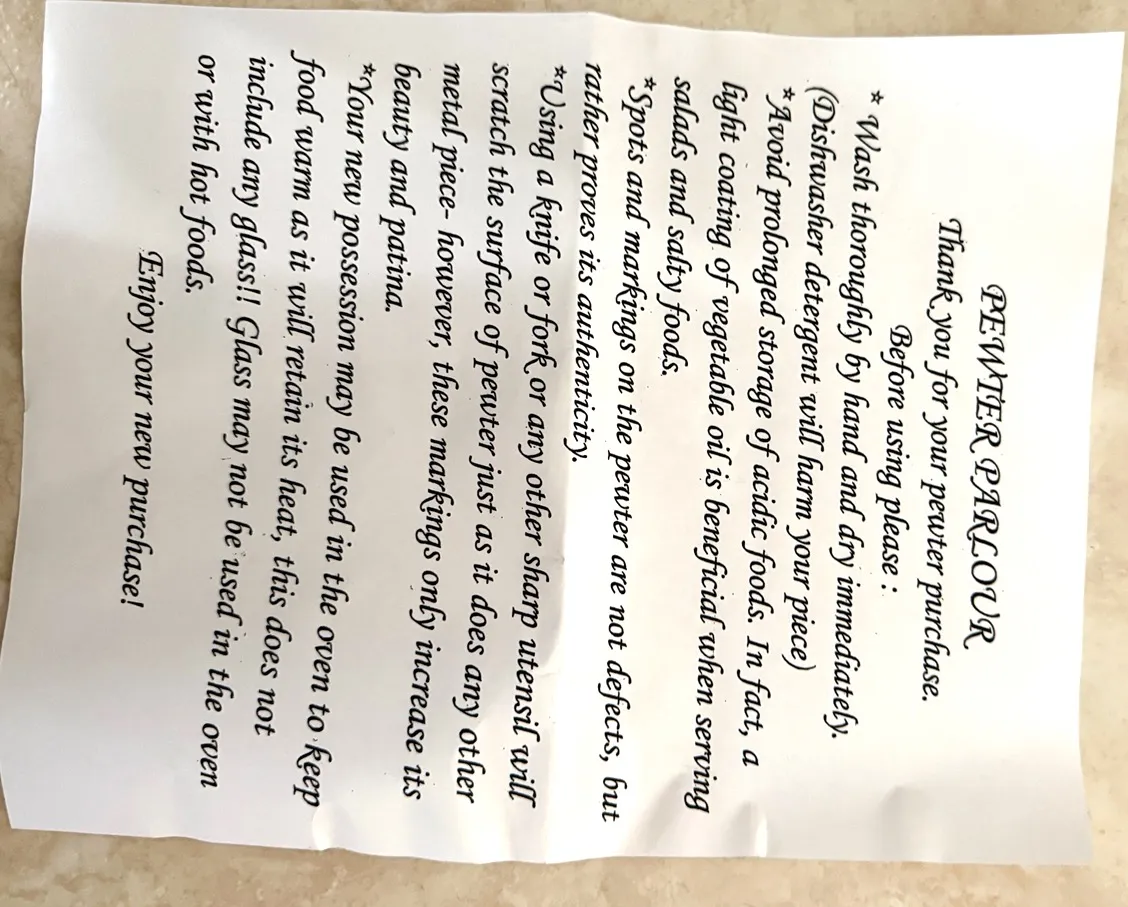 PEWTER PARLOUR
Thank you for your pewter purchase.
Before using please :
* Wash thoroughly by hand and dry immediately.
(Dishwasher detergent will harm your piece)
*Avoid prolonged storage of acidic foods. In fact, a
light coating of vegetable oil is beneficial when serving
salads and salty foods.
*Spots and markings on the pewter are not defects, but
rather proves its authenticity.
*Using a knife or fork or any other sharp utensil will
scratch the surface of pewter just as it does any other
metal piece- however, these markings only increase its
beauty and patina.
*Your new possession may be used in the oven to keep
food warm as it will retain its heat, this does not
include any glass!! Glass may not be used in the oven
or with hot foods.
Enjoy your new purchase!